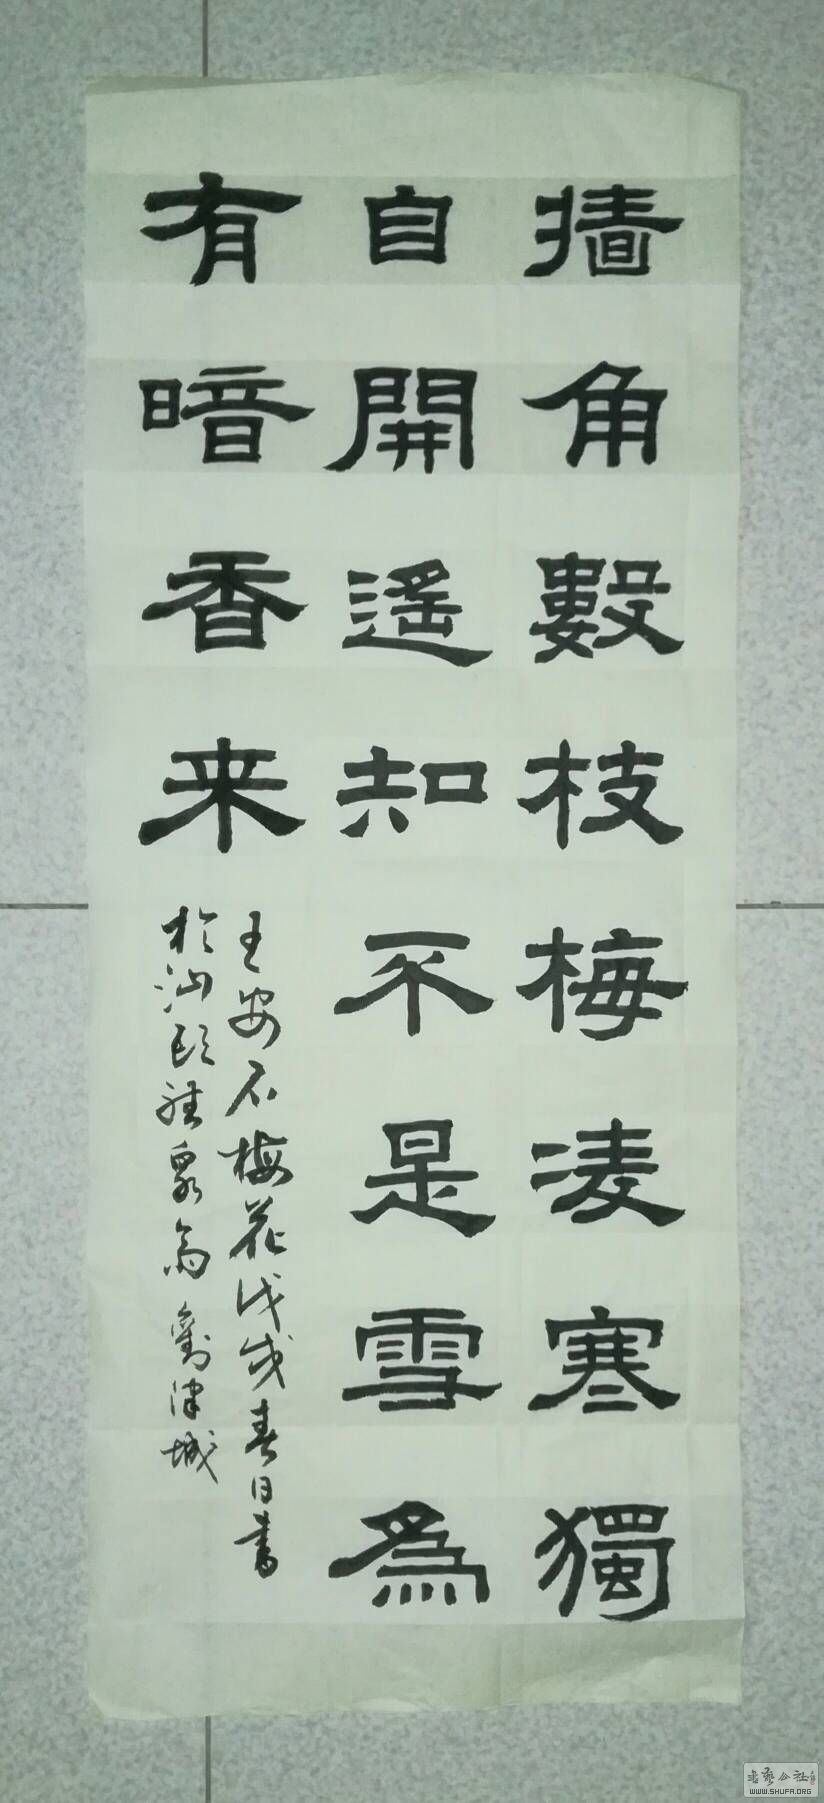 墙角數枝梅凌寒獨
自開遥知不是雪為
有暗香来
王安石梅花戊戌春日書
於汕頭雅泉斋劉津城
书艺公社
WWW.SHUFA.ORG